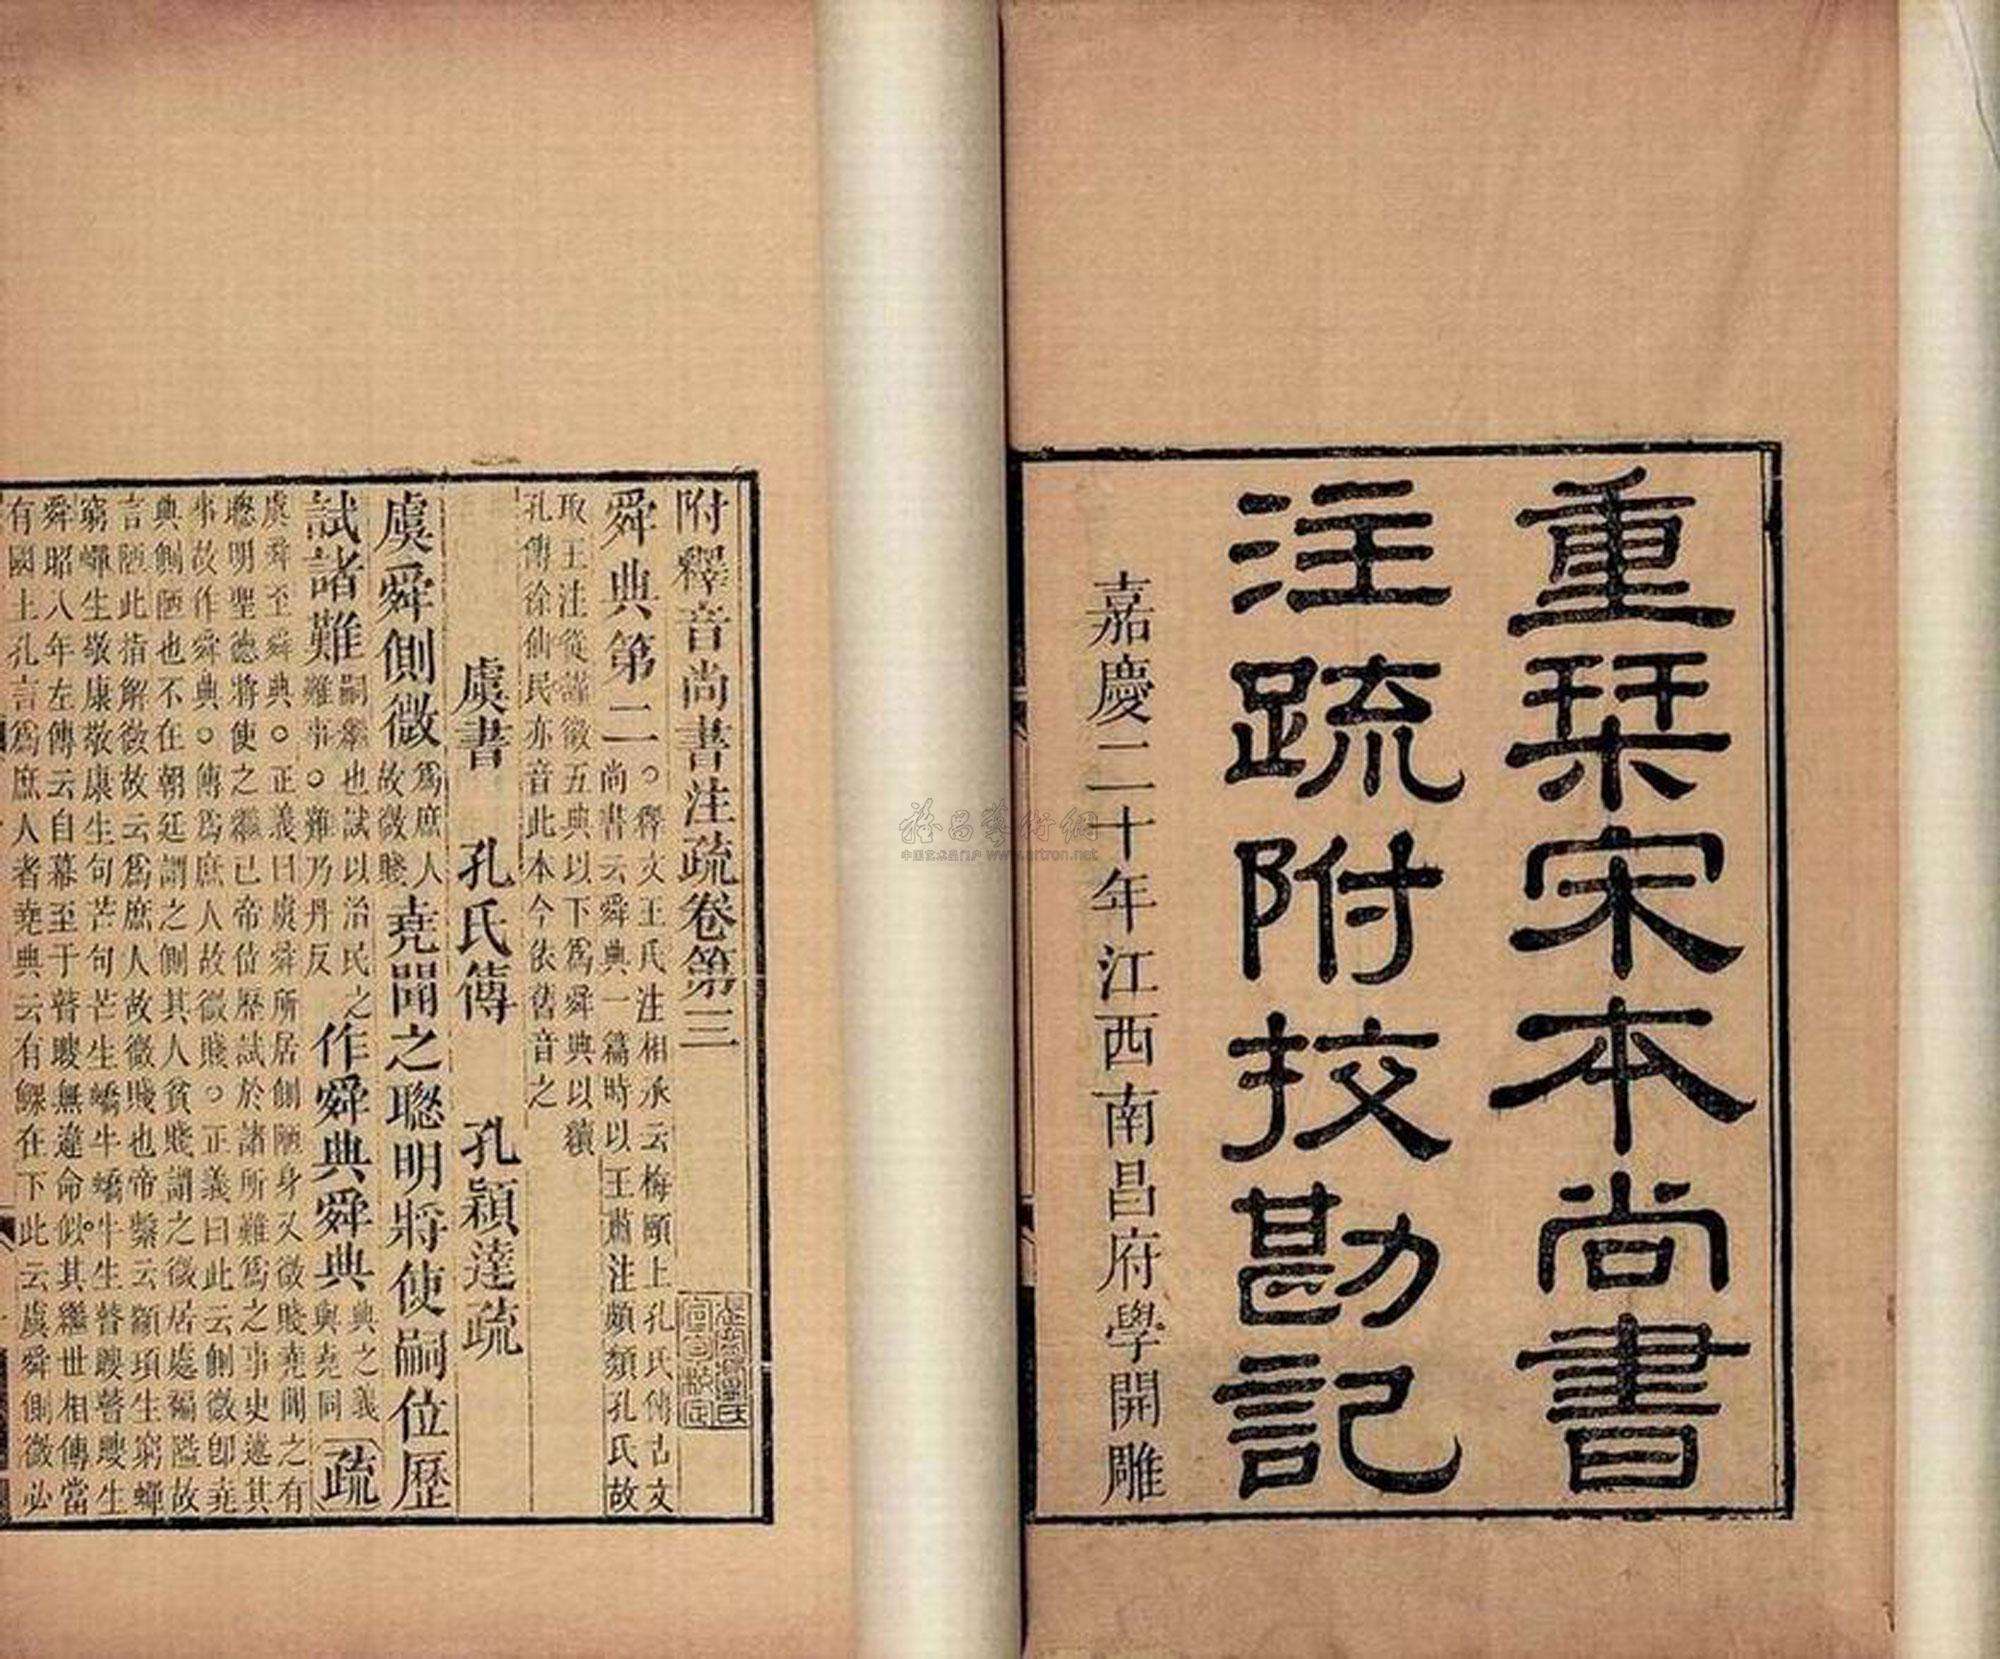 重栞宋本尚書
注疏附挍勘記
嘉慶二十年江西南昌府學開雕
附釋音尚書注疏卷第三
舜典第二○釋文王氏注相承云梅頤上孔氏傳古文
尚書云舜典一篇時以王肅注頗類孔氏故
取王注從謹徽五典以下爲舜典以續
孔傳徐仙民亦音此本今依舊音之
虞書 孔氏傳 孔穎達疏
虞舜側微爲庶人故微賤堯聞之聦明將使嗣位歷
試諸難嗣繼也試以治民之難事○難乃丹反作舜典舜典典之義與堯同疏
虞舜至舜典○正義曰虞舜所居側陋身又微賤堯聞之有
聦明聖德將使之繼己帝位歷試於諸所難爲之事史述其
事故作舜典○傳爲庶人故微賤○正義曰此云側微即堯
典側陋也不在朝廷謂之側其人貧賤謂之微居處褊隘故
言陋此指解微故云爲庶人故微賤也帝繫云顓頊生窮蟬
窮蟬生敬康敬康生句芒句芒生蟜牛蟜牛生瞽瞍瞽瞍生
舜昭八年左傳云自幕至于瞽瞍無違命似其繼世相傳當
有國土孔言爲庶人者堯典云有鰥在下此云虞舜側微必
中国艺术品门户 www.artron.net